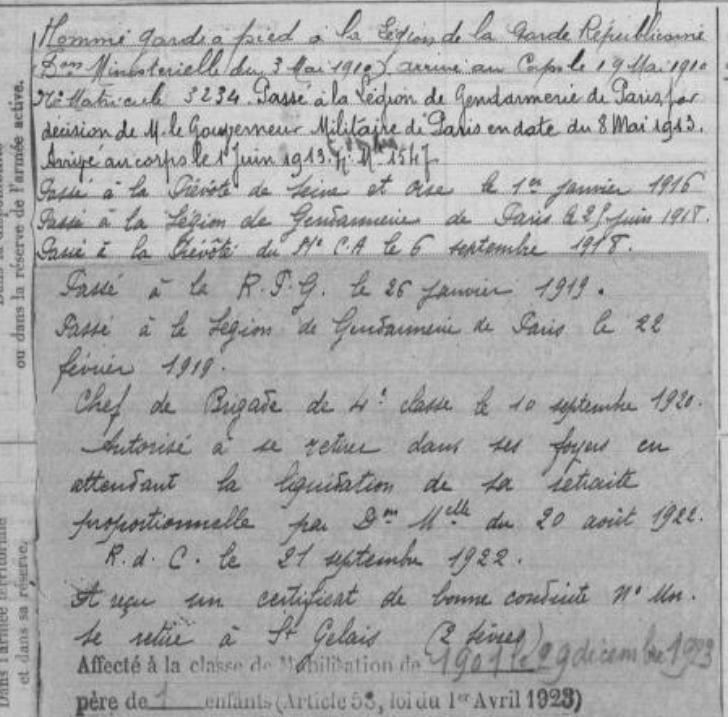 Nommé garde à pied à la Légion de la Garde Républicaine
(Don Ministerielle du 3 Mai 1910) arrivé au Corps le 19 Mai 1910
No Matricule 3234. Passé à la Légion de Gendarmerie de Paris par
décision de M. le Gouverneur Militaire de Paris en date du 8 Mai 1913.
Arrivé au corps le 1er Juin 1913. No Mle 1547
Passé à la Prévôté de Seine et Oise le 1er janvier 1916
Passé à la Légion de Gendarmerie de Paris le juin 1918.
Passé à la Prévôté du C.A le 6 septembre 1918.
Passé à la le 26 janvier 1919.
Passé à la Légion de Gendarmerie de Paris le 22
février 1919.
Chef de Brigade de 4e classe le 10 septembre 1920.
Autorisé à se retirer dans ses foyers en
attendant la liquidation de sa retraite
proportionnelle par Don Melle du 20 août 1922.
R.d.C. le 21 septembre 1922.
A reçu un certificat de bonne conduite No Un.
se retire à St Gelais (2 Sèvres)
Affecté à la classe de Mobilisation de 1901 le 29 décembre 1923
père de 1 enfants (Article 58, loi du 1er Avril 1923)
ou dans la réserve de l'armée active.
Dans l'armée territoriale
et dans sa réserve.